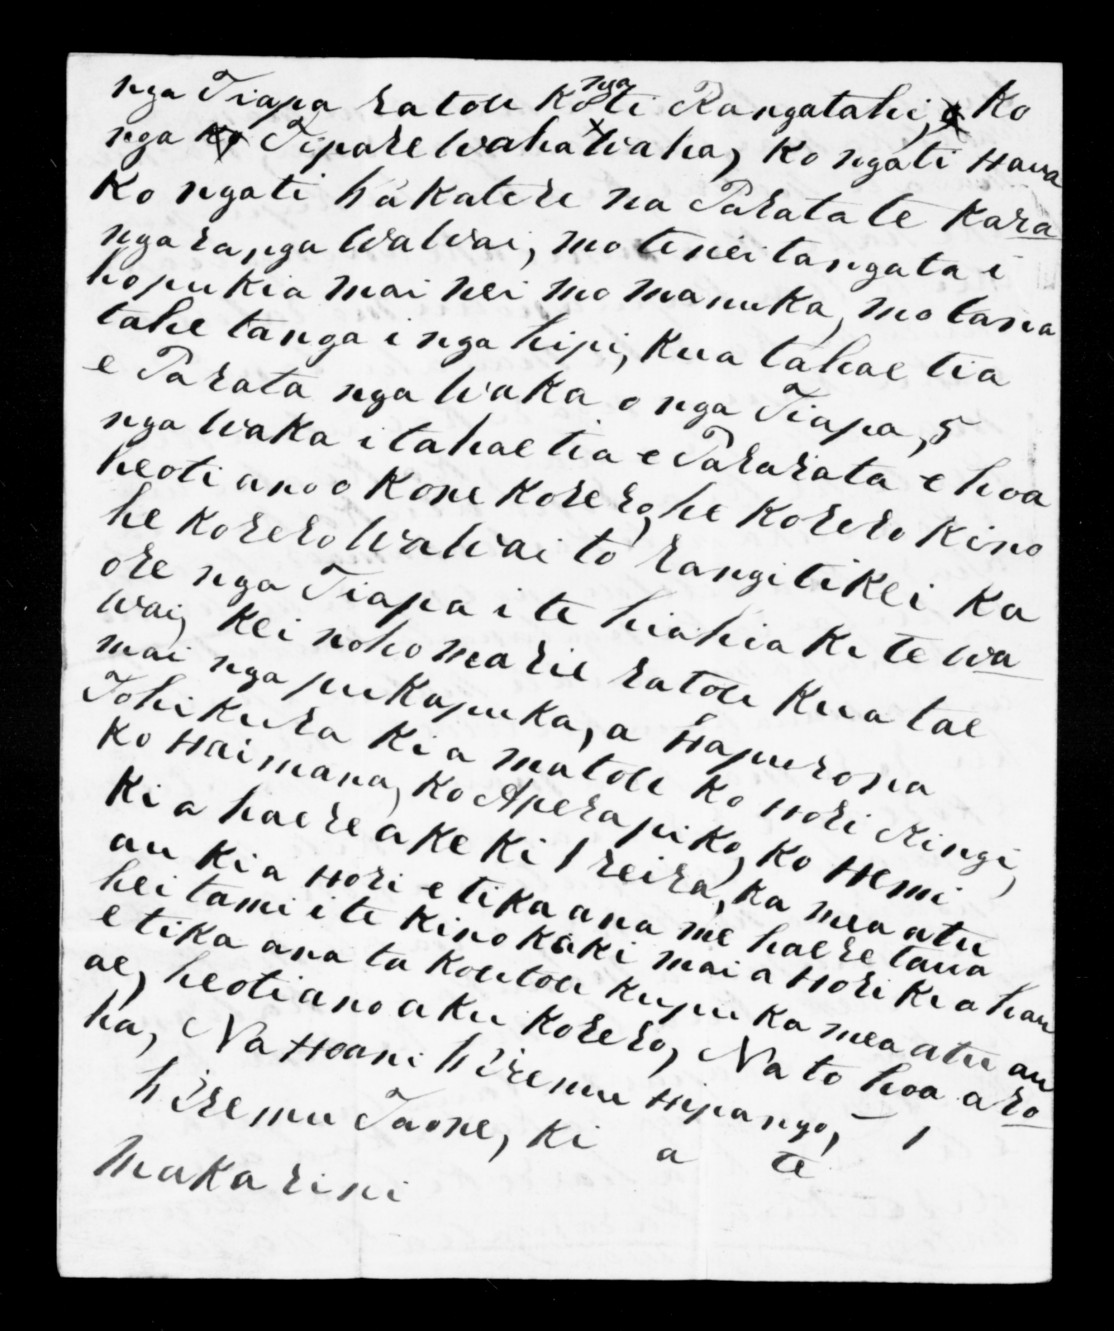 nga Tiapa ratou Ko nga ti Rangatahi, Ko
nga Tipare Wahawaha, Ko ngati Hawa
Ko ngati hakatere na Parata te Kara
nga ranga Walwai, mo tenei tangata i
hopukia mai nei mo manuka, mo tana
tahe tanga i nga hipi, Kua tahae tia
e Parata nga Waka o nga Tiapa, 5
nga Waka i tahae tia e Pararata e hoa
heoti ano o Kone Korero, he Korero Kino
he Korero Walwai to rangitikei Ka
ore nga Tiapa i te hiahia Ki te wa
wai, Kei noho marie ratou Kua tae
mai nga pukapuka, a Hapurona
Tohikura Ki a matou Ko Hori Kingi,
Ko Haimana, Ko Aperapiko, Ko Hemi
Ki a haere ake Ki reira, Ka mea atu
au Ki a Hori e tika ana me haere taua
hei tami i te Kino Kaki mai a Hori Ki a hau
e tika ana ta Koutou Kupu Ka mea atu au
ae, heoti ano aku Korero, Na to hoa aro
ha, Na Hoani Wiremu Hipango, -
Wiremu Taone, Ki a te
Makarini